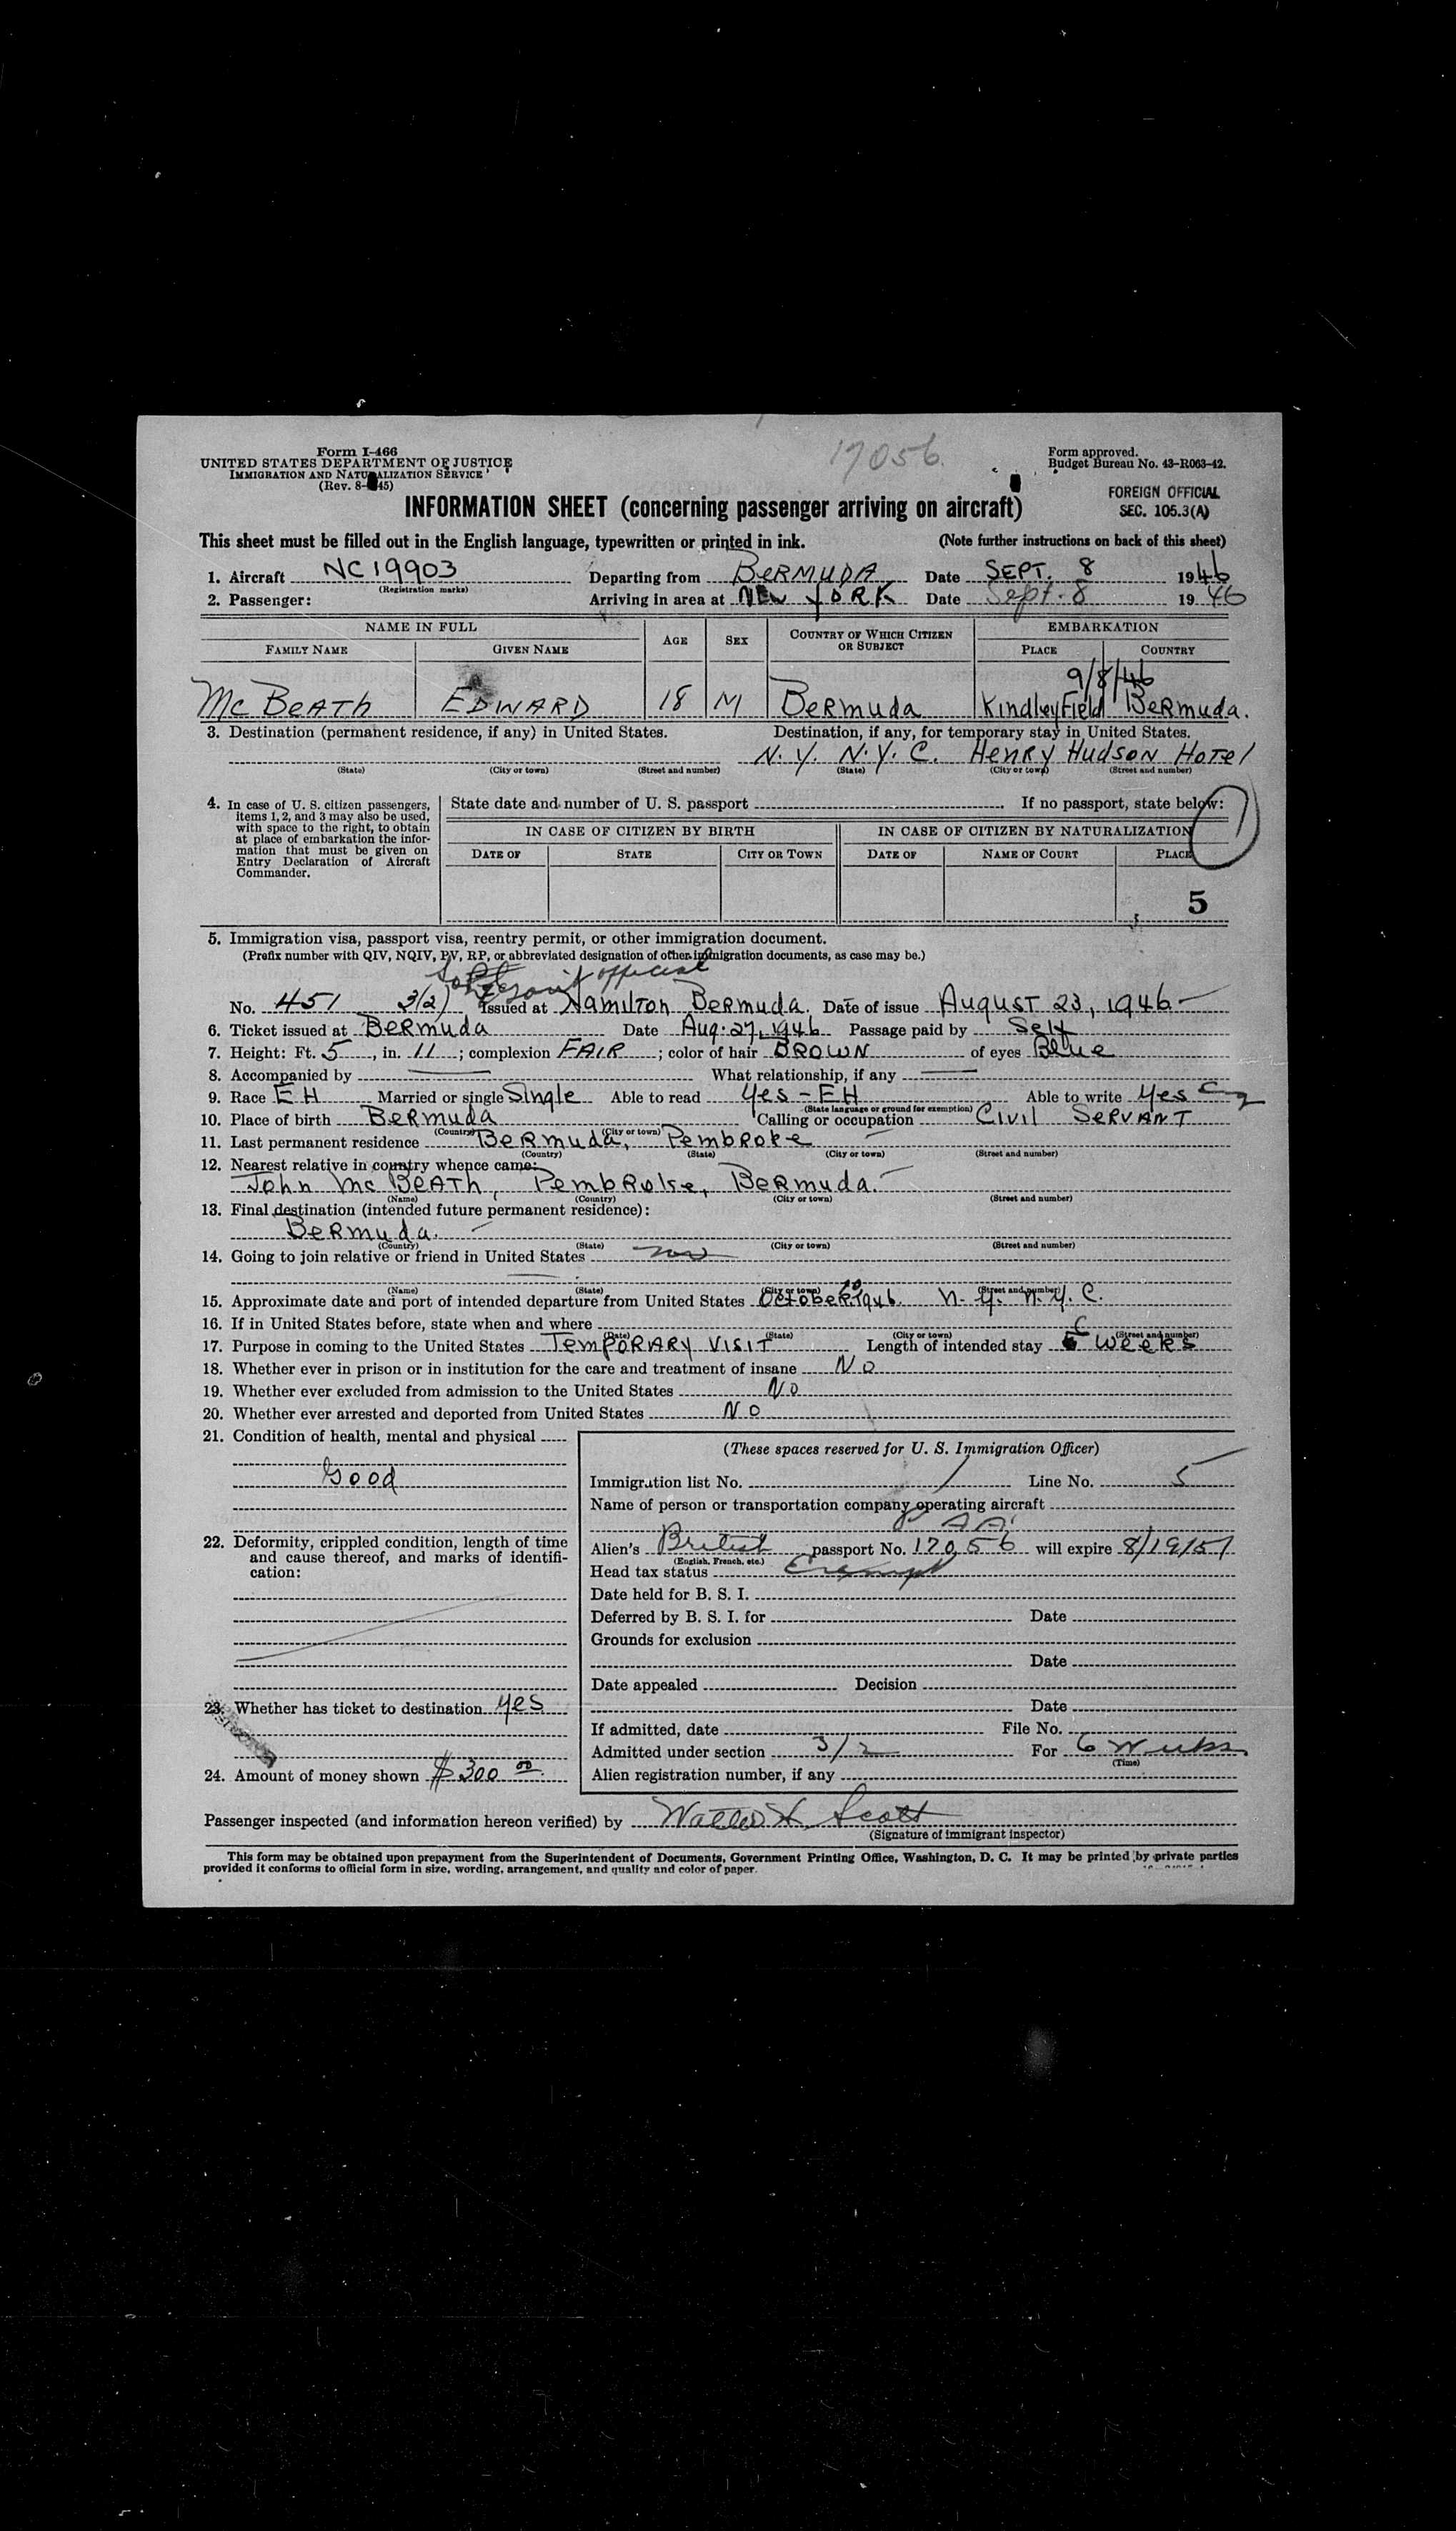 17056
Form I-466
UNITED STATES DEPARTMENT OF JUSTICE
IMMIGRATION AND NATURALIZATION SERVICE
(Rev. 8- 45)
Form approved.
Budget Bureau No. 43-R063-42.
FOREIGN OFFICIAL
SEC. 105.3(A)
INFORMATION SHEET (concerning passenger arriving on aircraft)
This sheet must be filled out in the English language, typewritten or printed in ink. (Note further instructions on back of this sheet)
1. Aircraft NC19903 Departing from BERMUDA Date SEPT. 8 1946
(Registration marks)
2. Passenger: Arriving in area at NEW YORK Date Sept. 8 1946
NAME IN FULL AGE SEX COUNTRY OF WHICH CITIZEN OR SUBJECT EMBARKATION
FAMILY NAME GIVEN NAME PLACE COUNTRY
9/8/46
McBEATh EDWARD 18 M BeRmuda KindleyField BeRmuda.
3. Destination (permanent residence, if any) in United States. Destination, if any, for temporary stay in United States.
N.Y. N.Y.C. HenRy HudsoN HoTel
(State) (City or town) (Street and number) (State) (City or town) (Street and number)
4. In case of U. S. citizen passengers, items 1, 2, and 3 may also be used, with space to the right, to obtain at place of embarkation the information that must be given on Entry Declaration of Aircraft Commander.
State date and number of U. S. passport If no passport, state below:
IN CASE OF CITIZEN BY BIRTH IN CASE OF CITIZEN BY NATURALIZATION
DATE OF STATE CITY OR TOWN DATE OF NAME OF COURT PLACE
5
5. Immigration visa, passport visa, reentry permit, or other immigration document.
(Prefix number with QIV, NQIV, PV, RP, or abbreviated designation of other immigration documents, as case may be.)
official
No. 451 3(2) Issued at HamilToN BeRmuda. Date of issue AugusT 23, 1946
6. Ticket issued at BeRmuda Date Aug. 27, 1946 Passage paid by Self
7. Height: Ft. 5, in. 11; complexion FAIR; color of hair BROWN of eyes Blue
8. Accompanied by What relationship, if any
9. Race EH Married or single Single Able to read Yes - EH Able to write Yes
(State language or ground for exemption)
10. Place of birth BeRmuda Calling or occupation Civil SeRVANT
(Country) (City or town)
11. Last permanent residence BeRmuda, PembRoke
(Country) (State) (City or town) (Street and number)
12. Nearest relative in country whence came:
John McBEATh, PembRoke, BeRmuda.
(Name) (Country) (City or town) (Street and number)
13. Final destination (intended future permanent residence):
BeRmuda.
(Country) (State) (City or town) (Street and number)
14. Going to join relative or friend in United States no
(Name) (State) (City or town) (Street and number)
15. Approximate date and port of intended departure from United States OctobeR 1946 N.Y. N.Y.C.
16. If in United States before, state when and where
(Date) (State) (City or town) (Street and number)
17. Purpose in coming to the United States TempORARy VisiT Length of intended stay 6 weeks
18. Whether ever in prison or in institution for the care and treatment of insane No
19. Whether ever excluded from admission to the United States No
20. Whether ever arrested and deported from United States No
21. Condition of health, mental and physical
Good
22. Deformity, crippled condition, length of time and cause thereof, and marks of identification:
23. Whether has ticket to destination yes
24. Amount of money shown $300 00
(These spaces reserved for U. S. Immigration Officer)
Immigration list No. 1 Line No. 5
Name of person or transportation company operating aircraft
Alien's British passport No. 17056 will expire 8/19/51
(English, French, etc.)
Head tax status Exempt
Date held for B. S. I.
Deferred by B. S. I. for Date
Grounds for exclusion
Date
Date appealed Decision
Date
If admitted, date File No.
Admitted under section 3/2 For 6 Weeks
(Time)
Alien registration number, if any
Passenger inspected (and information hereon verified) by Walter A. Scott
(Signature of immigrant inspector)
This form may be obtained upon prepayment from the Superintendent of Documents, Government Printing Office, Washington, D. C. It may be printed by private parties
provided it conforms to official form in size, wording, arrangement, and quality and color of paper.